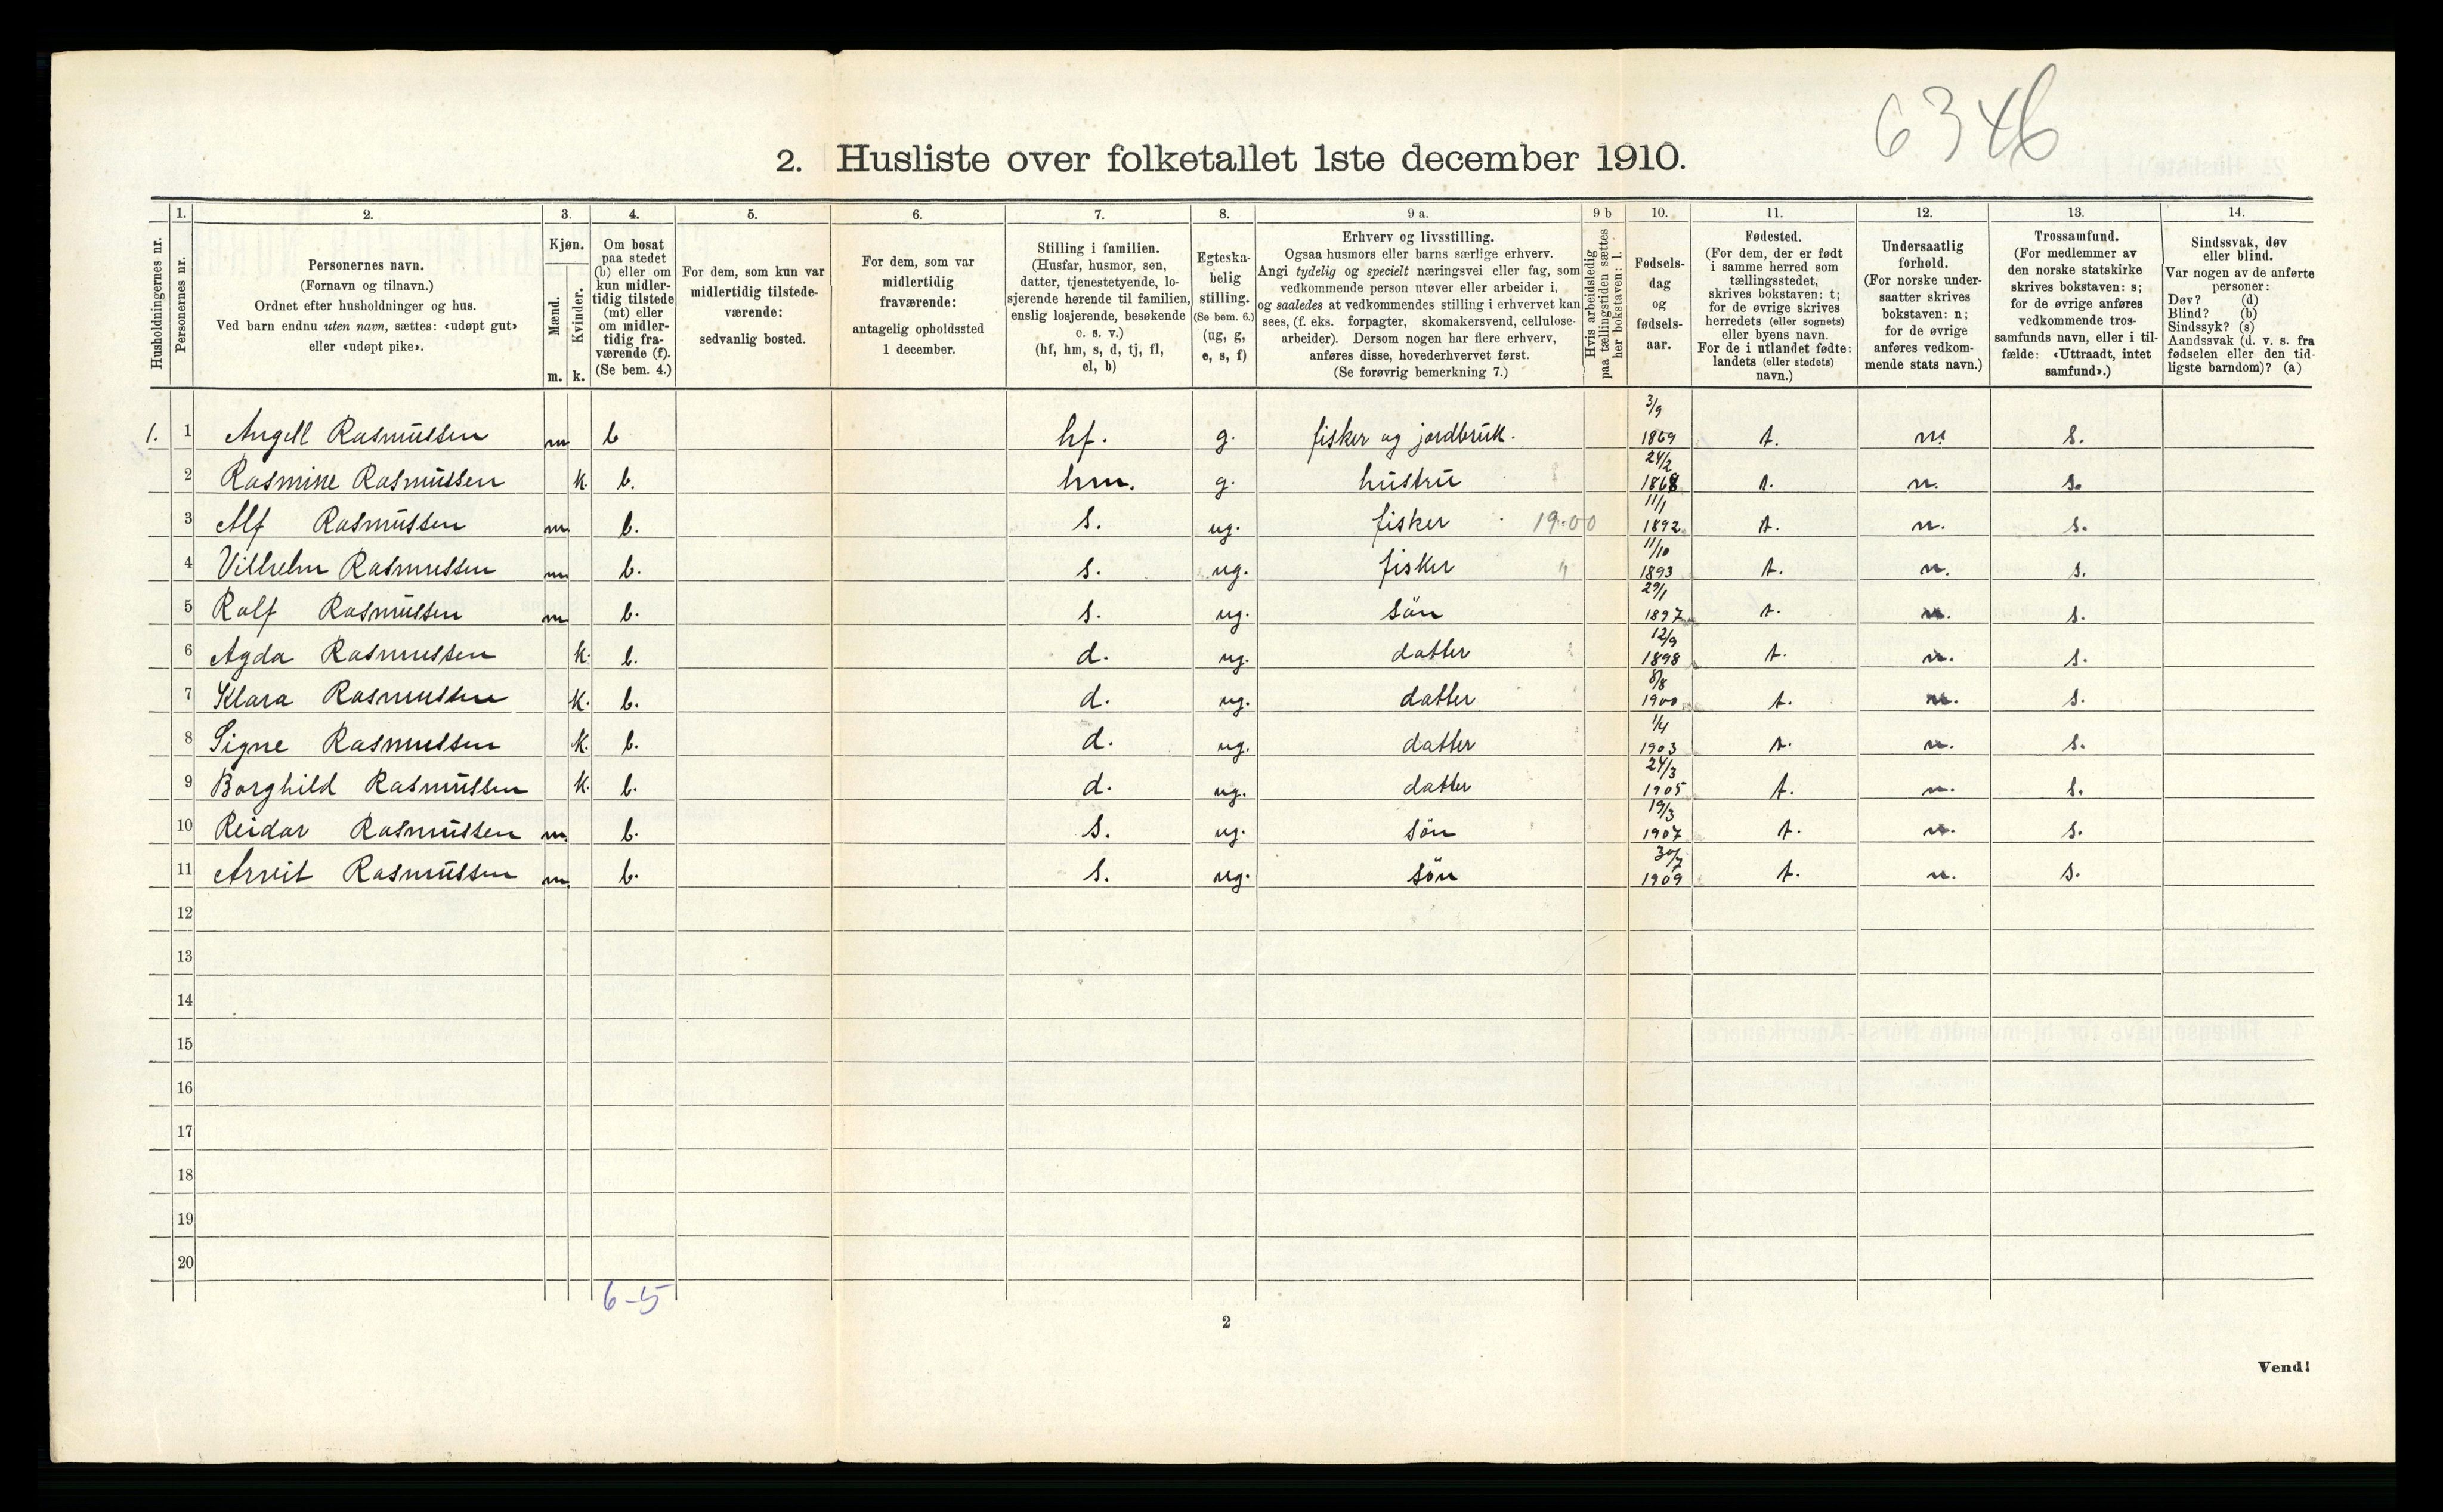 6346
2. Husliste over folketallet 1ste december 1910.
1. 2. 3. 4. 5. 6. 7. 8. 9 a. 9 b 10. 11. 12. 13. 14.
Husholdningernes nr.
Personernes nr.
Personernes navn.
(Fornavn og tilnavn.)
Ordnet efter husholdninger og hus.
Ved barn endnu uten navn, sættes: «udøpt gut»
eller «udøpt pike».
Kjøn.
Mænd.
Kvinder.
m. k.
Om bosat
paa stedet
(b) eller om
kun midler-
tidig tilstede
(mt) eller
om midler-
tidig fra-
værende (f).
(Se bem. 4.)
For dem, som kun var
midlertidig tilstede-
værende:
sedvanlig bosted.
For dem, som var
midlertidig
fraværende:
antagelig opholdssted
1 december.
Stilling i familien.
(Husfar, husmor, søn,
datter, tjenestetyende, lo-
sjerende hørende til familien,
enslig losjerende, besøkende
o. s. v.)
(hf, hm, s, d, tj, fl,
el, b)
Egteska-
belig
stilling.
(Se bem. 6.)
(ug, g,
e, s, f)
Erhverv og livsstilling.
Ogsaa husmors eller barns særlige erhverv.
Angi tydelig og specielt næringsvei eller fag, som
vedkommende person utøver eller arbeider i,
og saaledes at vedkommendes stilling i erhvervet kan
sees, (f. eks. forpagter, skomakersvend, cellulose-
arbeider). Dersom nogen har flere erhverv,
anføres disse, hovederhvervet først.
(Se forøvrig bemerkning 7.)
Hvis arbeidsledig
paa tællingstiden sættes
her bokstaven: l.
Fødsels-
dag
og
fødsels-
aar.
Fødested.
(For dem, der er født
i samme herred som
tællingsstedet,
skrives bokstaven: t;
for de øvrige skrives
herredets (eller sognets)
eller byens navn.
For de i utlandet fødte:
landets (eller stedets)
navn.)
Undersaatlig
forhold.
(For norske under-
saatter skrives
bokstaven: n;
for de øvrige
anføres vedkom-
mende stats navn.)
Trossamfund.
(For medlemmer av
den norske statskirke
skrives bokstaven: s;
for de øvrige anføres
vedkommende tros-
samfunds navn, eller i til-
fælde: «Uttraadt, intet
samfund».)
Sindssvak, døv
eller blind.
Var nogen av de anførte
personer:
Døv? (d)
Blind? (b)
Sindssyk? (s)
Aandssvak (d. v. s. fra
fødselen eller den tid-
ligste barndom)? (a)
1. 1 Angell Rasmussen m b hf. g. fisker og jordbruk. 3/9 1869 t. n. s.
2 Rasmine Rasmussen k. b. hm. g. hustru 24/2 1868 t. n. s.
3 Alf Rasmussen m b. s. ug. fisker 19.00 11/1 1892 t. n. s.
4 Vilhelm Rasmussen m b. s. ug. fisker 11/10 1893 t. n. s.
5 Rolf Rasmussen m b. s. ug. sön 29/1 1897 t. n. s.
6 Agda Rasmussen k. b. d. ug. datter 12/9 1898 t. n. s.
7 Klara Rasmussen k. b. d. ug. datter 8/8 1900 t. n. s.
8 Signe Rasmussen k. b. d. ug. datter 1/4 1903 t. n. s.
9 Borghild Rasmussen k. b. d. ug. datter 24/3 1905 t. n. s.
10 Reidar Rasmussen m. b. s. ug. sön 19/3 1907 t. n. s.
11 Arvit Rasmussen m b. s. ug. sön 30/7 1909 t. n. s.
12
13
14
15
16
17
18
19
20
6-5
2
Vend!